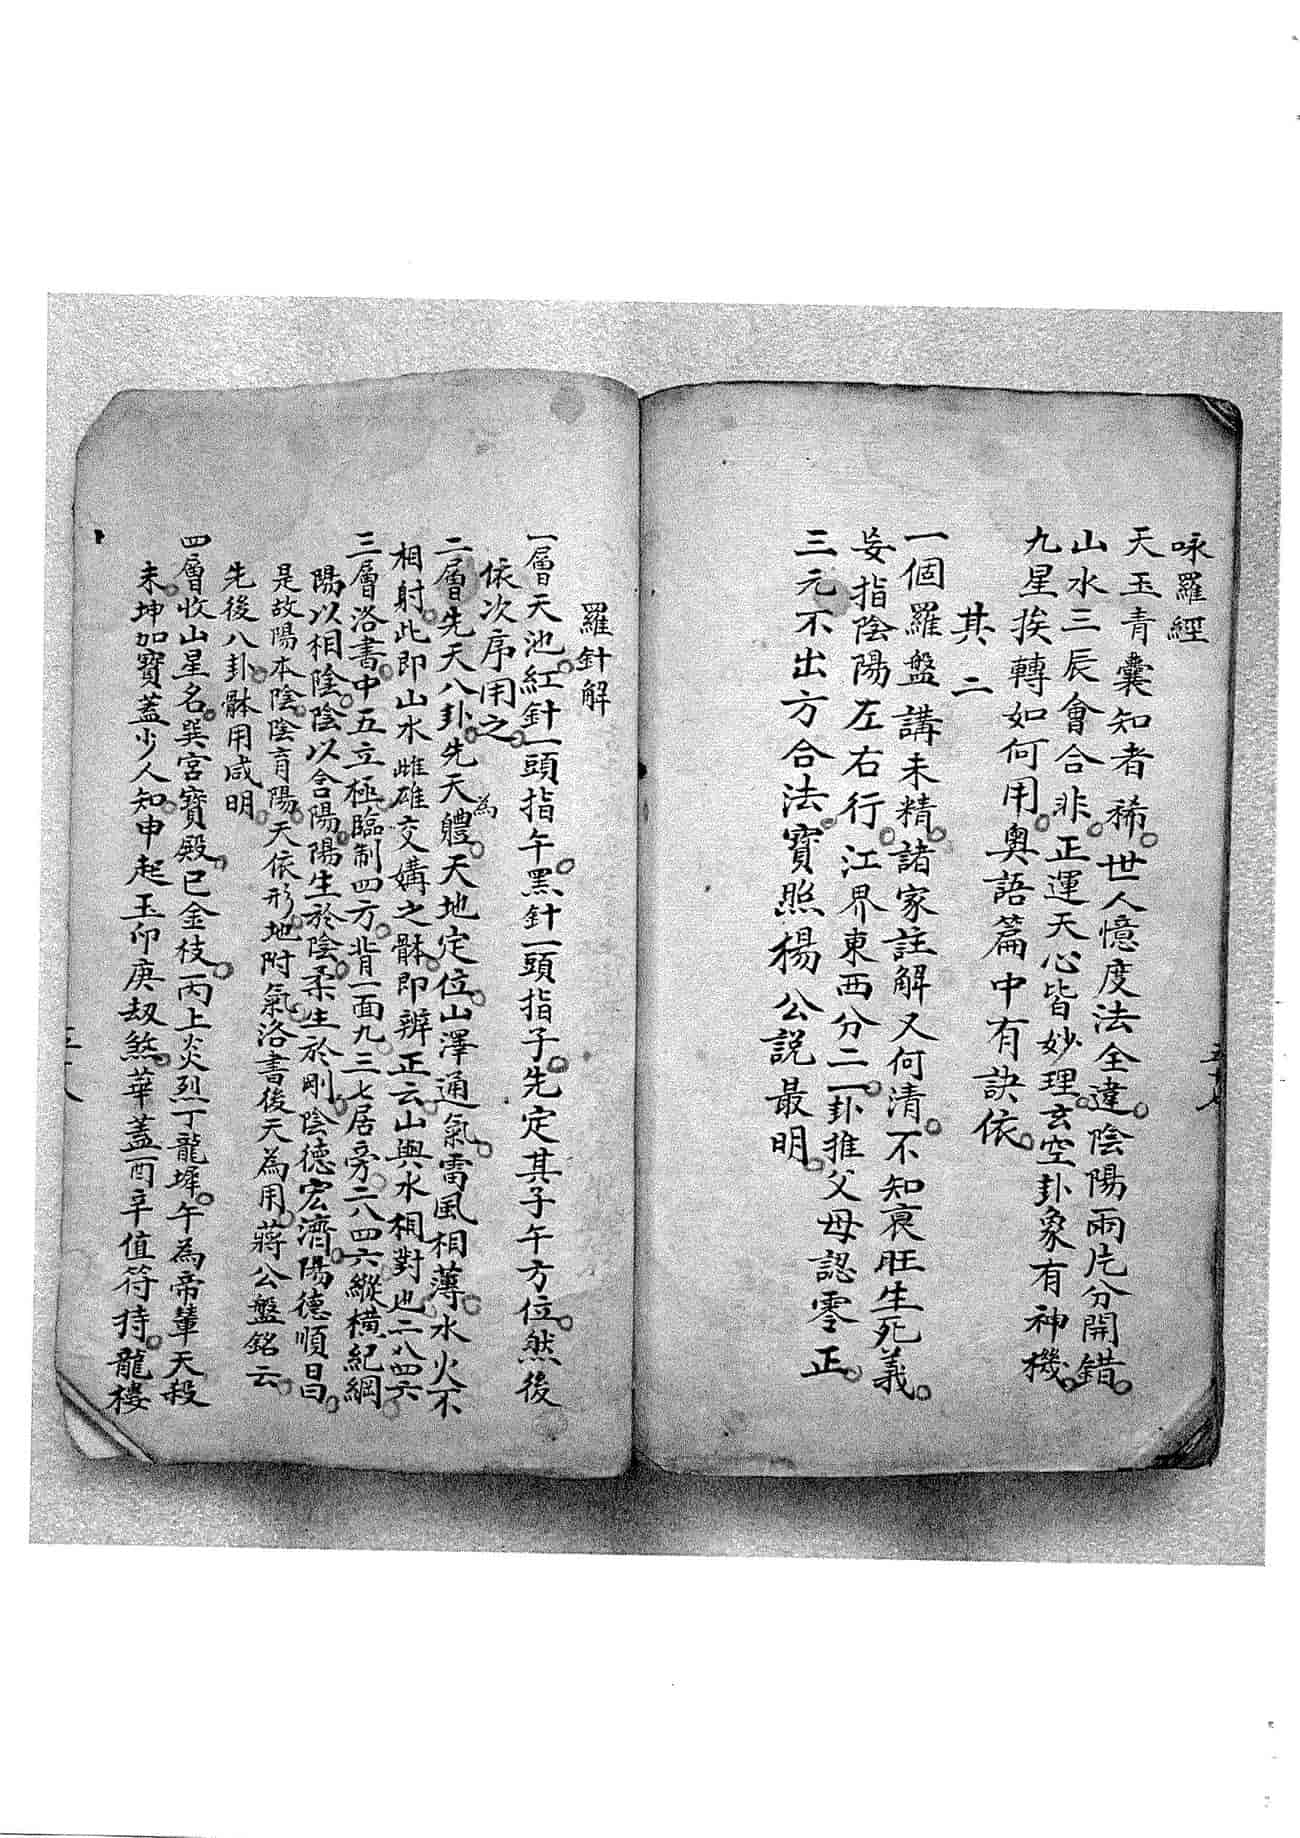 咏羅經
天玉青囊知者稀。世人憶度法全違。陰陽兩片分開錯。
山水三辰會合非。正運天心皆妙理。玄空卦象有神機。
九星挨轉如何用。奧語篇中有訣依。
其二
一個羅盤講未精。諸家註解又何清。不知衰旺生死義。
妄指陰陽左右行。江界東西分二卦。推父母認零正。
三元不出方合法。寶照楊公説最明。
羅針解
一層天池。紅針一頭指午。黑針一頭指子。先定其子午方位。然後
依次序用之。
二層先天八卦。先天為體。天地定位。山澤通氣。雷風相薄。水火不
相射。此即山水雌雄交媾之骵。即辨正云。山與水相對也。二八四六
三層洛書。中五立極。臨制四方。背一面九。三七居旁。二八四六縱橫紀綱。
陽以相陰。陰以含陽。陽生於陰。柔生於剛。陰德宏濟。陽德順昌。
是故陽本陰。陰育陽。天依形。地附氣。洛書後天為用。蔣公盤銘云。
先後八卦。骵用咸明。
四層收山星名。巽宮寶殿。巳金枝。丙上炎烈丁龍墀。午為帝輦天殺
未。坤加寶蓋少人知。申起玉印庚刼煞。華蓋酉辛值符持。龍樓
五十八